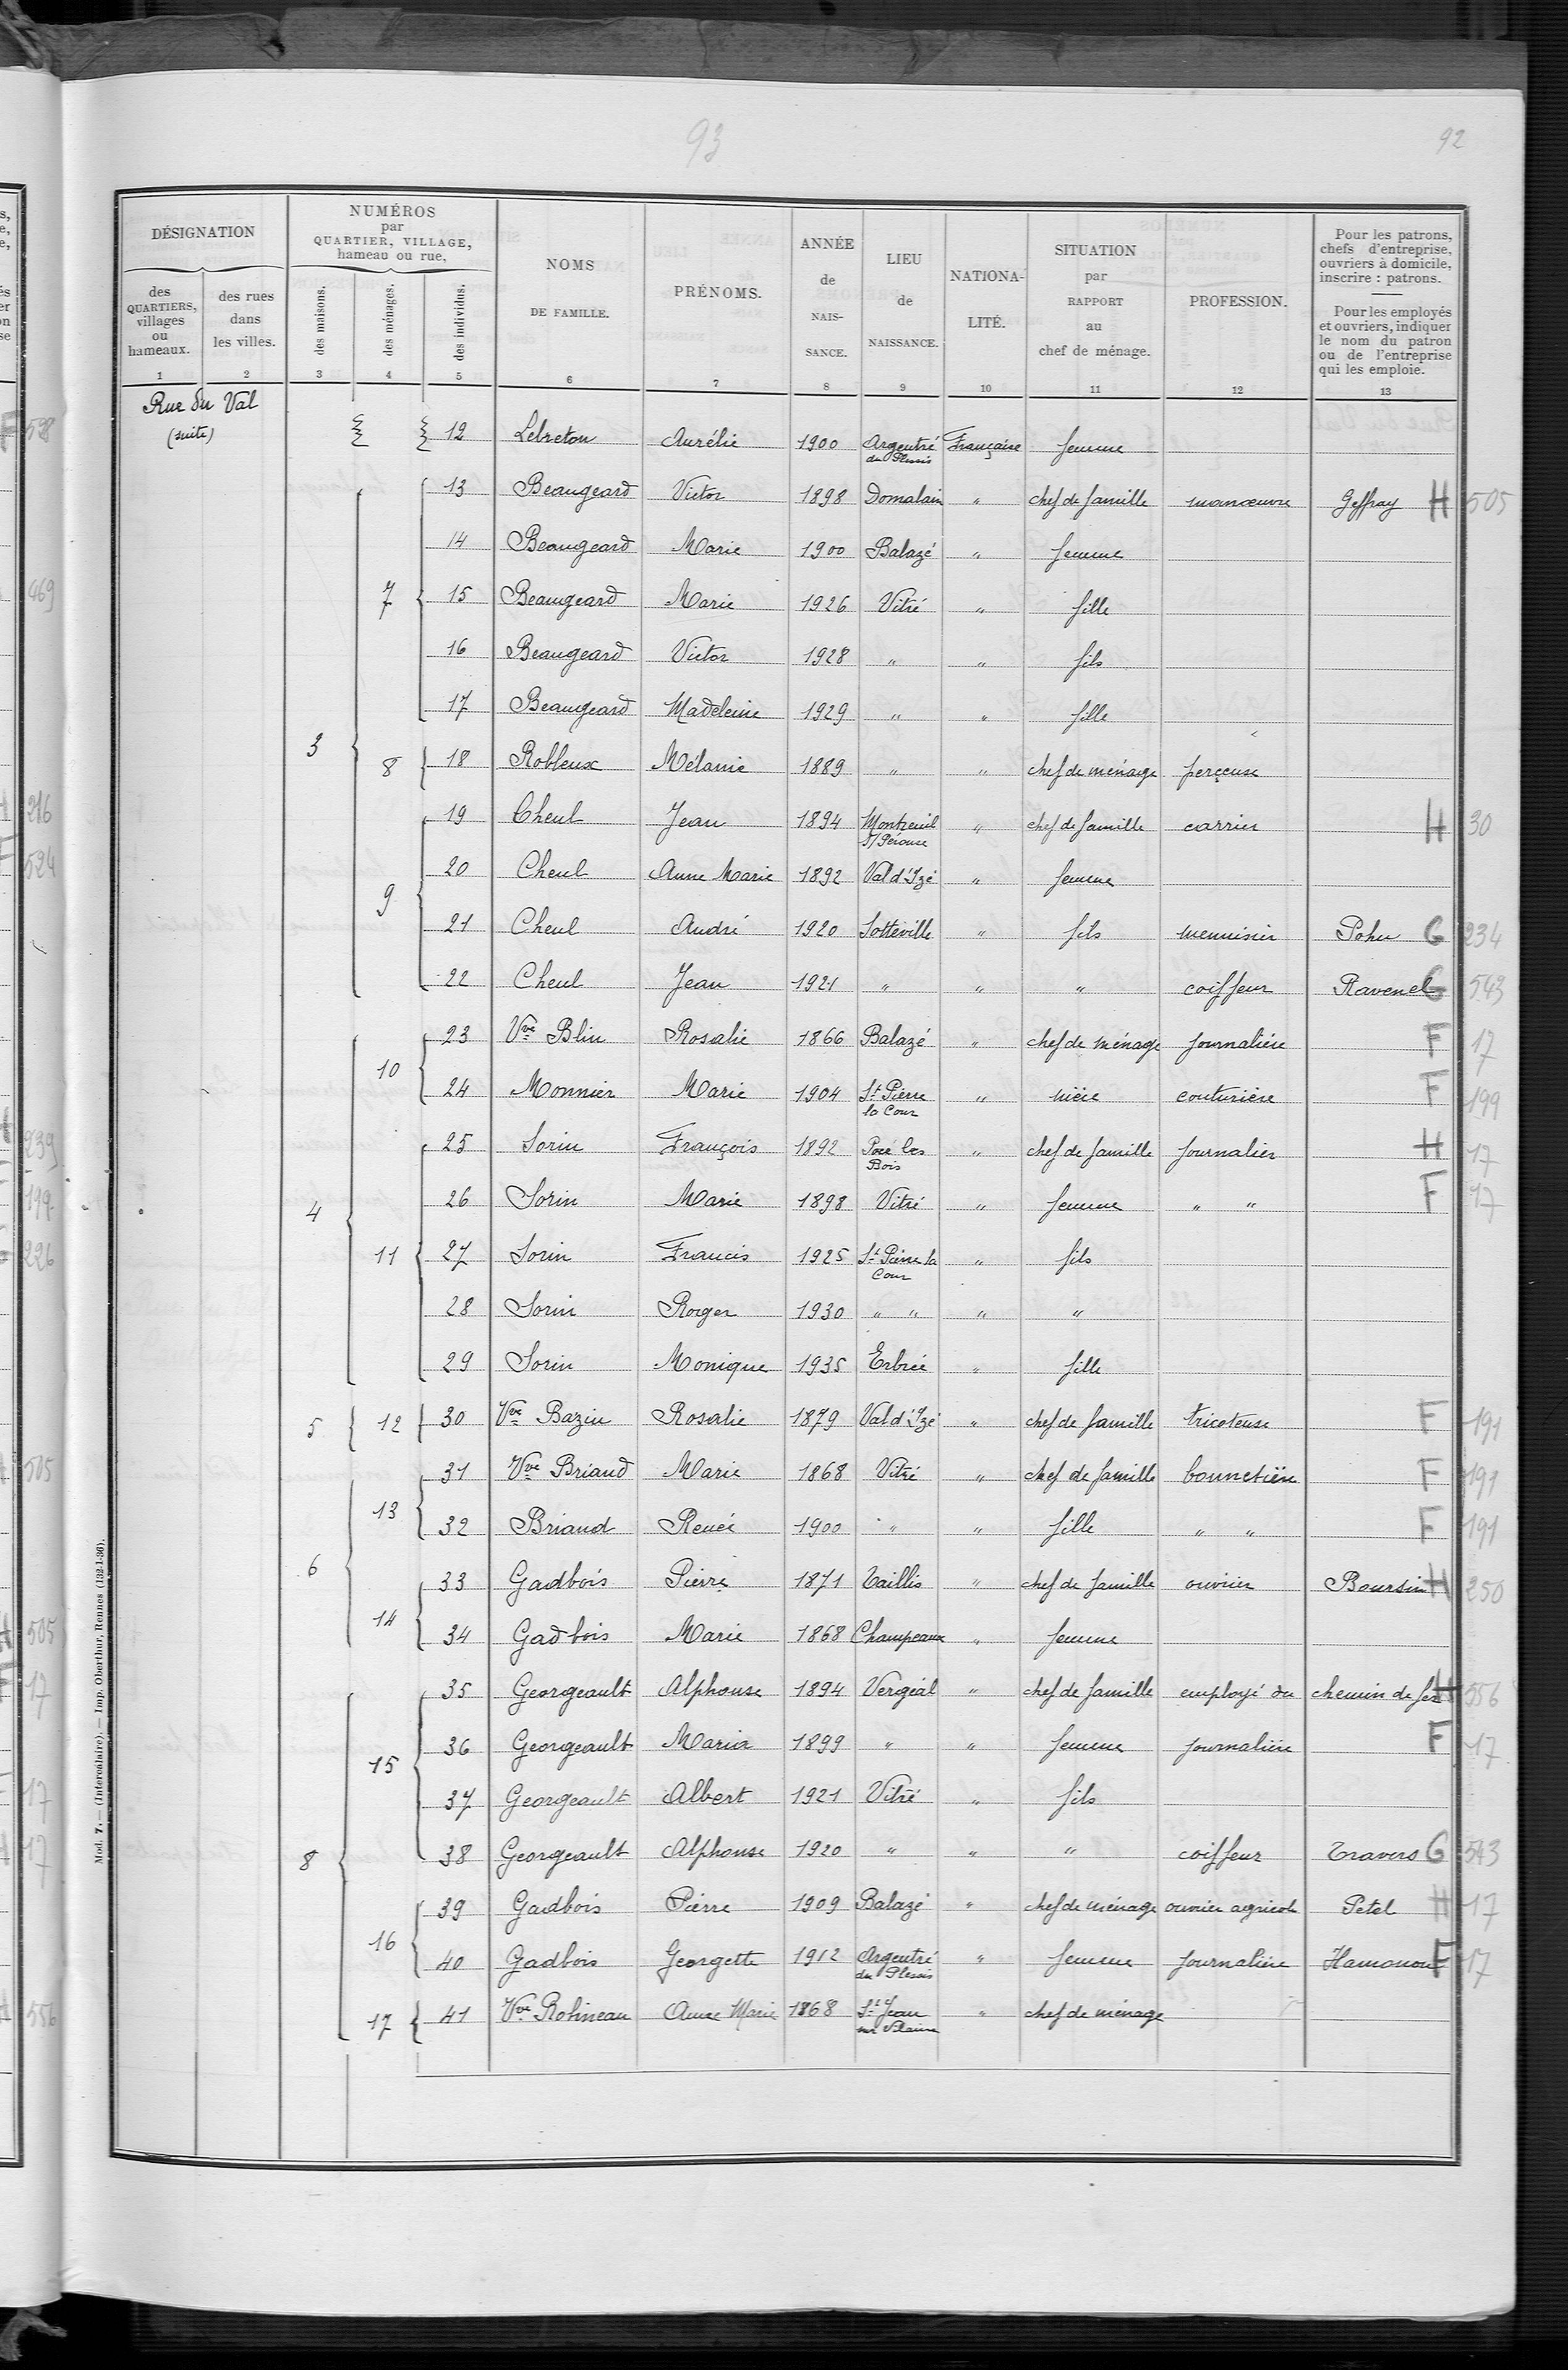 93
92
DÉSIGNATION
des QUARTIERS, villages ou hameaux.
des rues dans les villes.
NUMÉROS par QUARTIER, VILLAGE, hameau ou rue,
des maisons.
des ménages.
des individus.
NOMS DE FAMILLE.
PRÉNOMS.
ANNÉE de NAIS-SANCE.
LIEU de NAISSANCE.
NATIONA-LITÉ.
SITUATION par RAPPORT au chef de ménage.
PROFESSION.
Pour les patrons, chefs d'entreprise, ouvriers à domicile, inscrire : patrons.
Pour les employés et ouvriers, indiquer le nom du patron ou de l'entreprise qui les emploie.
1 2 3 4 5 6 7 8 9 10 11 12 13
Rue du Val
(suite)
12 Lebreton Aurélie 1900 Argentré du Plessis Française femme
13 Beaugeard Victor 1898 Domalain " chef de famille manœuvre Geffray H 505
14 Beaugeard Marie 1900 Balazé " femme
7 15 Beaugeard Marie 1926 Vitré " fille
16 Beaugeard Victor 1928 " " fils
17 Beaugeard Madeleine 1929 " " fille
3 8 18 Robleux Mélanie 1889 " " chef de ménage perçeuse
19 Cheul Jean 1894 Montreuil s/ Pérouse " chef de famille carrier H 30
9 20 Cheul Anne Marie 1892 Val d'Izé " femme
21 Cheul André 1920 Sotteville " fils menuisier Pohu G 234
22 Cheul Jean 1921 " " " coiffeur Ravenel G 543
10 23 Vve Blin Rosalie 1866 Balazé " chef de ménage journalière F 17
24 Monnier Marie 1904 St Pierre la Cour " nièce couturière F 199
25 Sorin François 1892 Pocé les Bois " chef de famille journalier H 17
4 26 Sorin Marie 1898 Vitré " femme " " F 17
11 27 Sorin Francis 1925 St Pierre la Cour " fils
28 Sorin Roger 1930 " " " "
29 Sorin Monique 1935 Erbrée " fille
5 12 30 Vve Bazin Rosalie 1879 Val d'Izé " chef de famille tricoteuse F 191
31 Vve Briand Marie 1868 Vitré " chef de famille bonnetière F 191
13 32 Briand Renée 1900 " " fille " " F 191
6 33 Gadbois Pierre 1871 Taillis " chef de famille ouvrier Boursin H 250
14 34 Gadbois Marie 1868 Champeaux " femme
35 Georgeault Alphonse 1894 Vergéal " chef de famille employé du chemin de fer H 556
15 36 Georgeault Maria 1899 " " femme journalière F 17
37 Georgeault Albert 1921 Vitré " fils
8 38 Georgeault Alphonse 1920 " " " coiffeur Travers G 543
39 Gadbois Pierre 1909 Balazé " chef de ménage ouvrier agricole Petel H 17
16 40 Gadbois Georgette 1912 Argentré du Plessis " femme journalière Hamonou F 17
17 41 Vve Robineau Anne Marie 1868 St Jean sur Vilaine " chef de ménage
Mod. 7. — (Intercalaire). — Imp. Oberthur, Rennes (132-1-36).
538
469
216
524
239
199
226
505
505
17
17
17
556